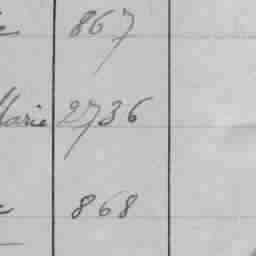 867
Marie 2736
868